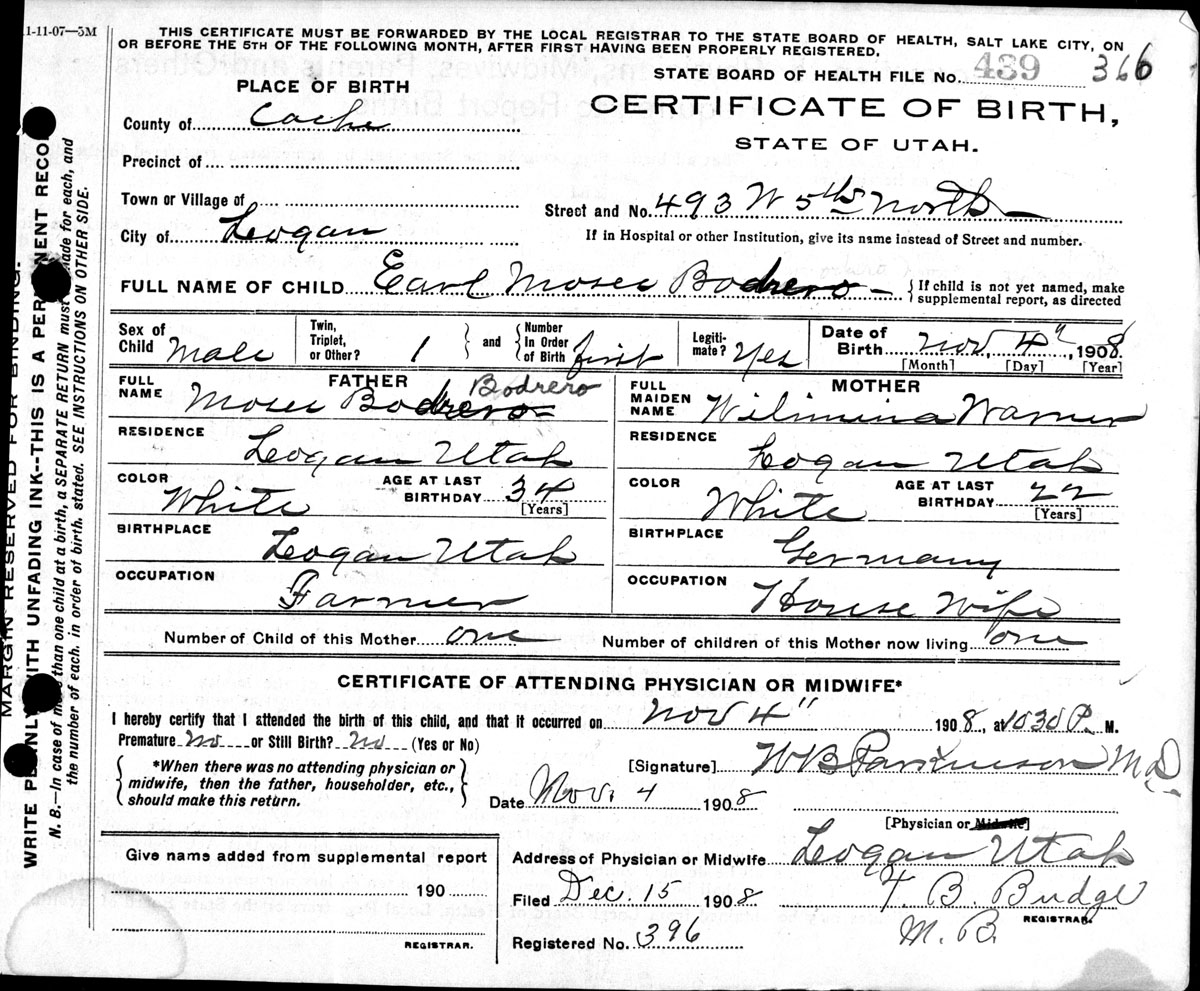 11-11-07—5M
THIS CERTIFICATE MUST BE FORWARDED BY THE LOCAL REGISTRAR TO THE STATE BOARD OF HEALTH, SALT LAKE CITY, ON
OR BEFORE THE 5TH OF THE FOLLOWING MONTH, AFTER FIRST HAVING BEEN PROPERLY REGISTERED.
STATE BOARD OF HEALTH FILE No. 439 366
PLACE OF BIRTH
CERTIFICATE OF BIRTH,
STATE OF UTAH.
County of Cache
Precinct of
Town or Village of
Street and No. 493 W 5th North
City of Logan
If in Hospital or other Institution, give its name instead of Street and number.
FULL NAME OF CHILD Earl Moses Bodrero { If child is not yet named, make
supplemental report, as directed
Sex of Child Male
Twin, Triplet, or Other? 1 } and { Number In Order of Birth first
Legiti-mate? Yes
Date of Birth Nov, 4", 1908.
[Month] [Day] [Year]
FATHER
FULL NAME Moses Bodrero Bodrero
RESIDENCE Logan Utah
COLOR White AGE AT LAST BIRTHDAY 34
[Years]
BIRTHPLACE Logan Utah
OCCUPATION Farmer
MOTHER
FULL MAIDEN NAME Wilimina Warner
RESIDENCE Logan Utah
COLOR White AGE AT LAST BIRTHDAY 22
[Years]
BIRTHPLACE Germany
OCCUPATION House Wife
Number of Child of this Mother one Number of children of this Mother now living one
CERTIFICATE OF ATTENDING PHYSICIAN OR MIDWIFE*
I hereby certify that I attended the birth of this child, and that it occurred on Nov 4" 1908, at 1030 P. M.
Premature No or Still Birth? No (Yes or No)
{ *When there was no attending physician or
midwife, then the father, householder, etc.,
should make this return. }
[Signature] W B Parkinson M D
Date Nov. 4 1908
[Physician or Midwife]
Address of Physician or Midwife Logan Utah
Filed Dec. 15 1908 T. B. Budge
REGISTRAR.
M. B.
Registered No. 396
Give name added from supplemental report
190
REGISTRAR.
MARGIN RESERVED FOR BINDING.
WRITE PLAINLY WITH UNFADING INK--THIS IS A PERMANENT RECORD
N. B.—In case of more than one child at a birth, a SEPARATE RETURN must be made for each, and
the number of each, in order of birth, stated. SEE INSTRUCTIONS ON OTHER SIDE.